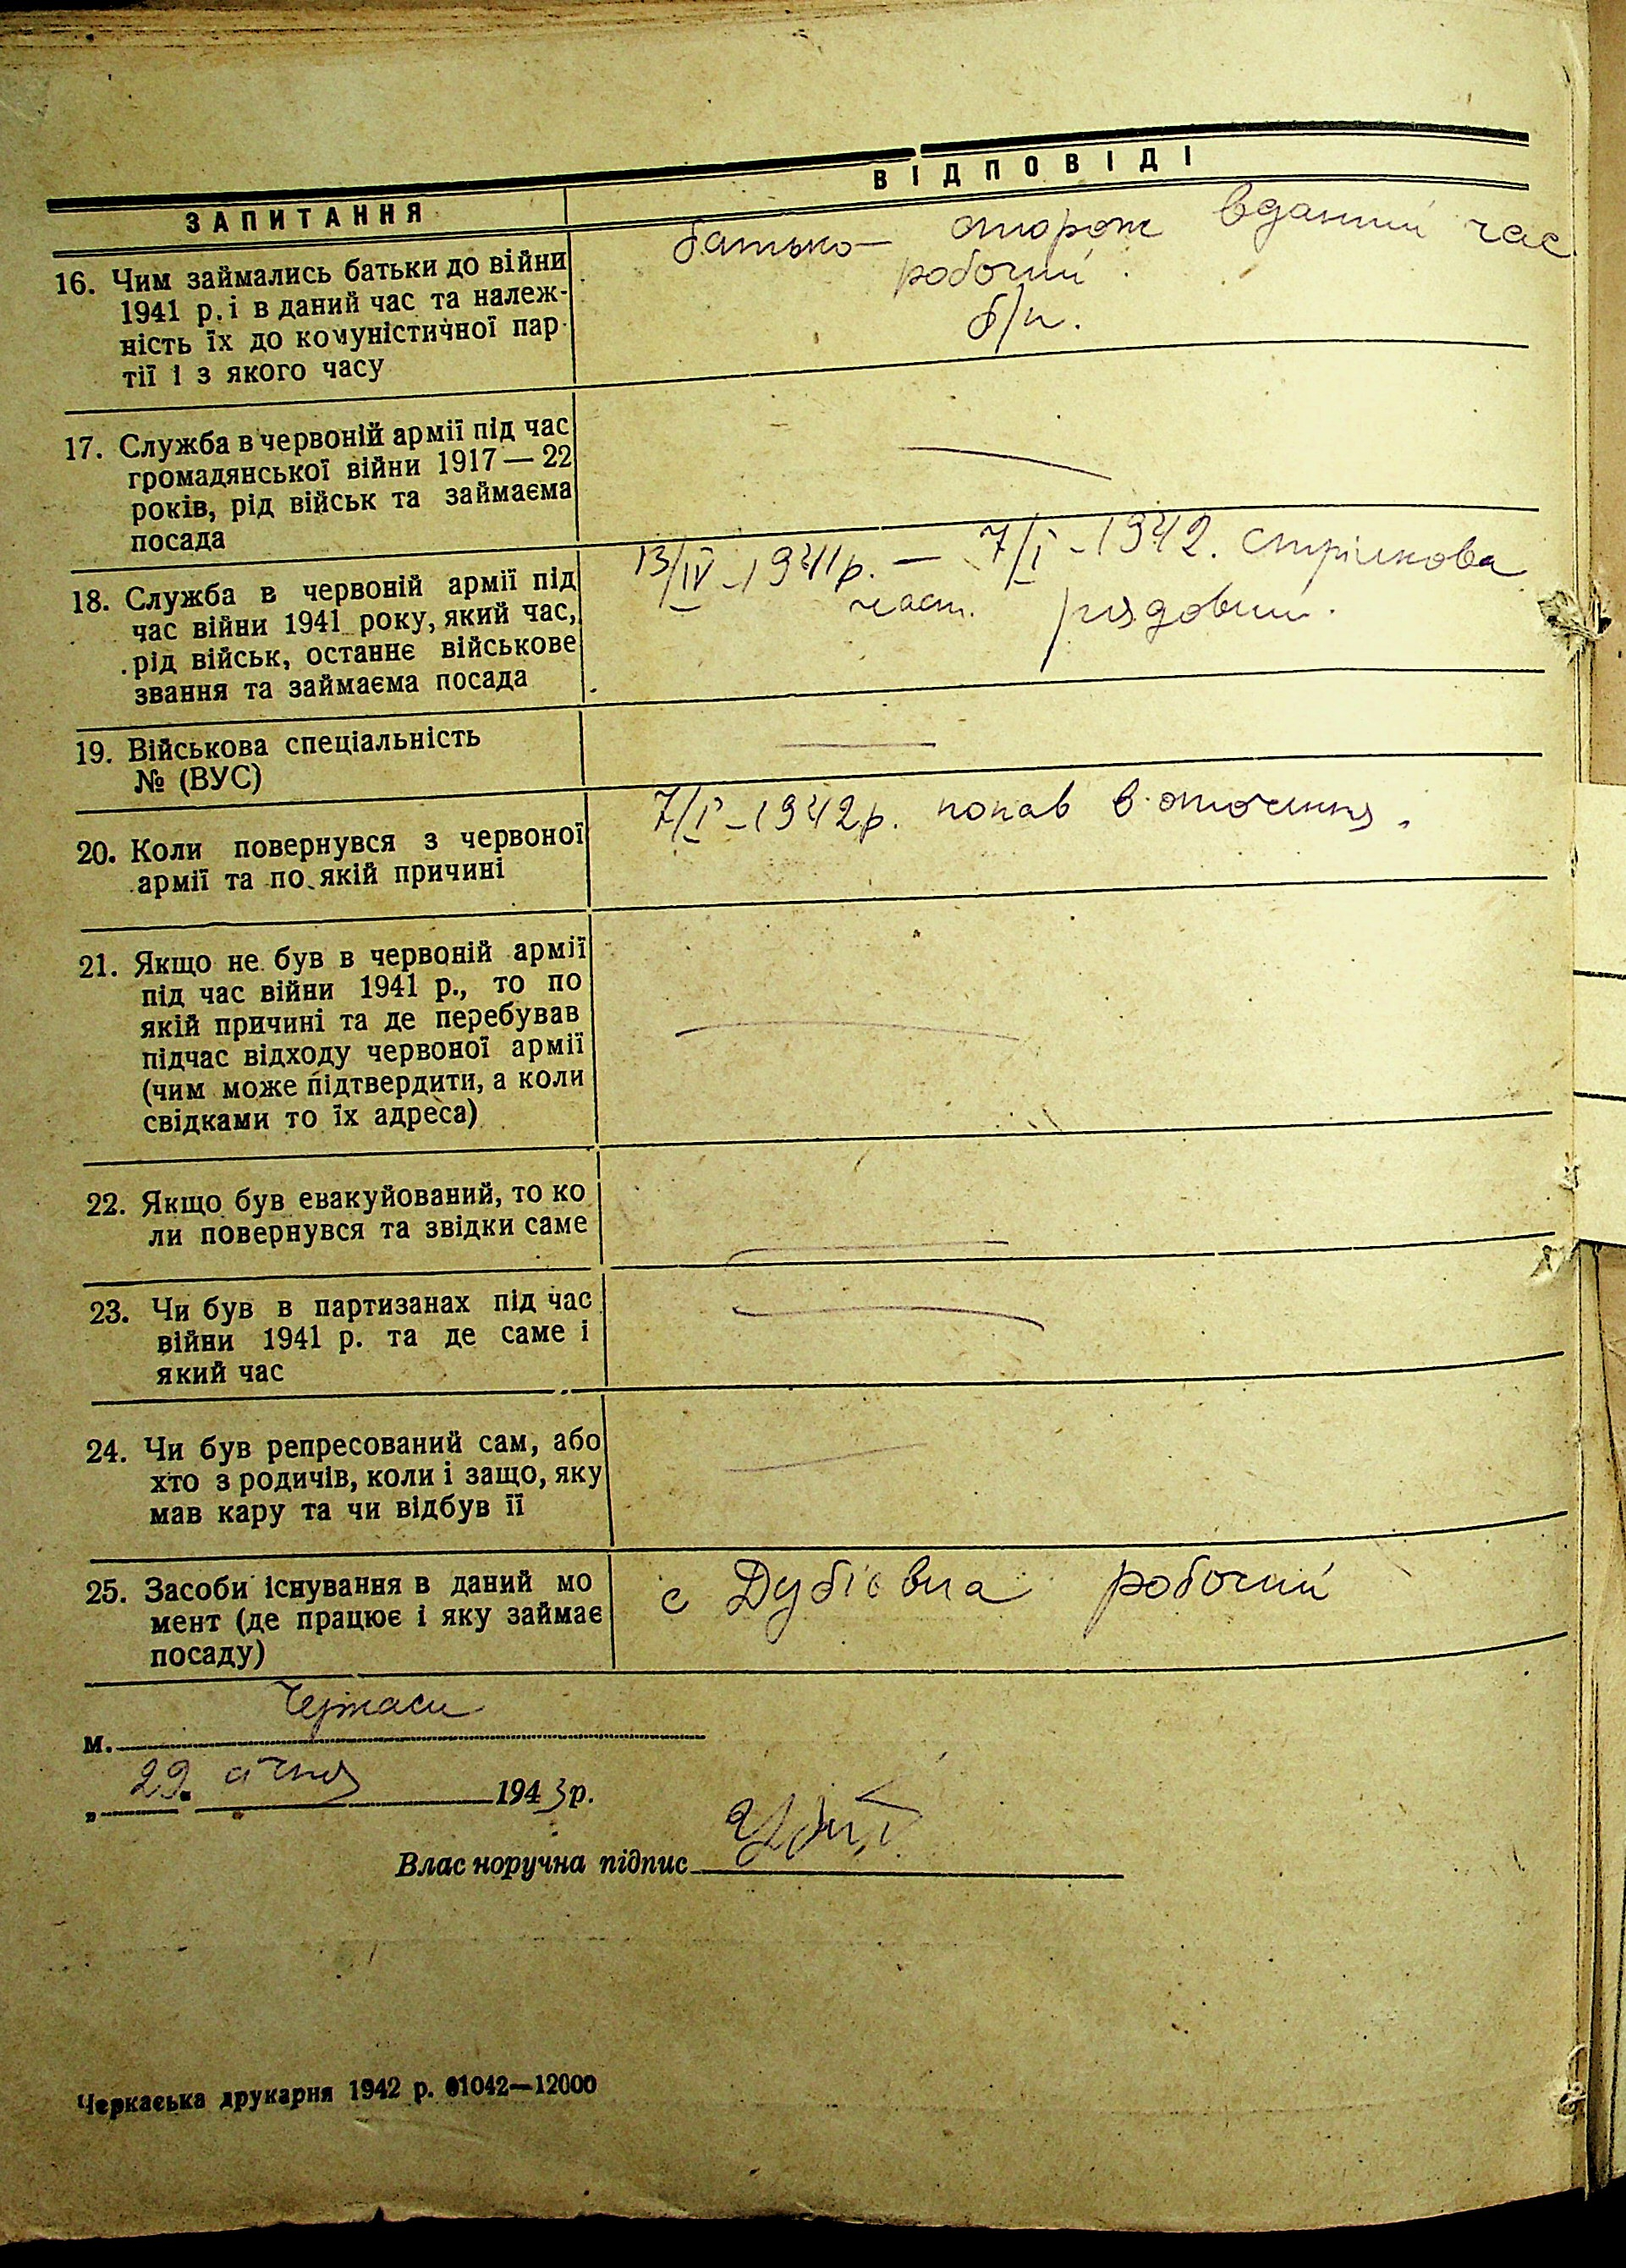 ЗАПИТАННЯ
ВІДПОВІДІ
16. Чим займались батьки до війни
1941 р. і в даний час та належ-
ність їх до комуністичної пар-
тії і з якого часу
батько — сторож вданий час
робочий.
б/п.
17. Служба в червоній армії під час
громадянської війни 1917 — 22
років, рід військ та займаєма
посада
18. Служба в червоній армії під
час війни 1941 року, який час,
рід військ, останнє військове
звання та займаєма посада
13/IV-1941р. — 7/I-1942. стрілкова
част. рядовий.
19. Військова спеціальність
№ (ВУС)
20. Коли повернувся з червоної
армії та по якій причині
7/I-1942р. попав в оточення.
21. Якщо не був в червоній армії
під час війни 1941 р., то по
якій причині та де перебував
підчас відходу червоної армії
(чим може підтвердити, а коли
свідками то їх адреса)
22. Якщо був евакуйований, то ко
ли повернувся та звідки саме
23. Чи був в партизанах під час
війни 1941 р. та де саме і
який час
24. Чи був репресований сам, або
хто з родичів, коли і защо, яку
мав кару та чи відбув її
25. Засоби існування в даний мо
мент (де працює і яку займає
посаду)
с Дубіївка робочий
м. Черкаси
„ 29. січня 1943р.
Власноручна підпис
Черкаська друкарня 1942 р. 01042—12000